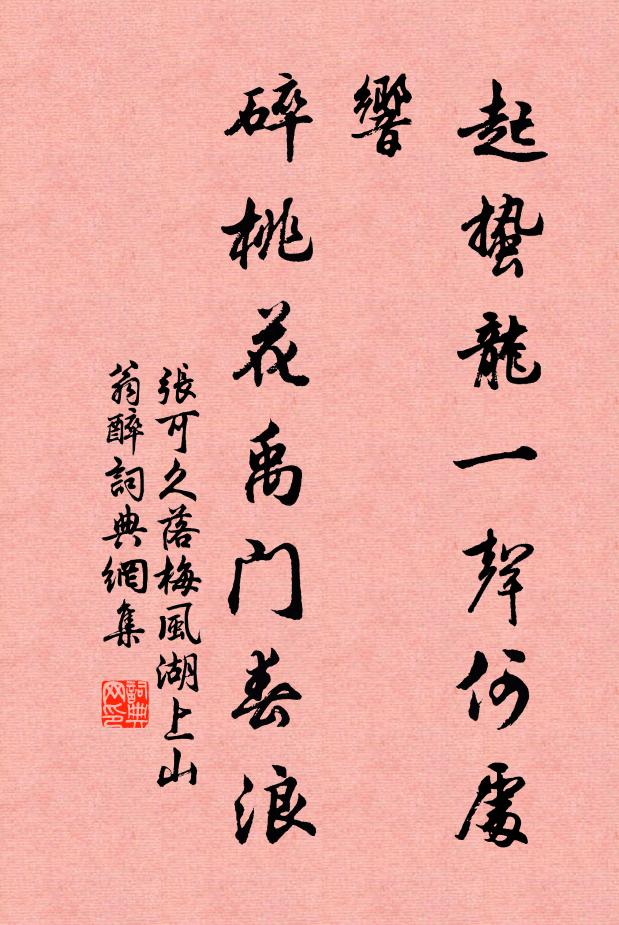 起蟄龍一聲何處
響
碎桃花禹门春浪
張可久落梅風湖上山
翁醉詞典網集
詞典
网印